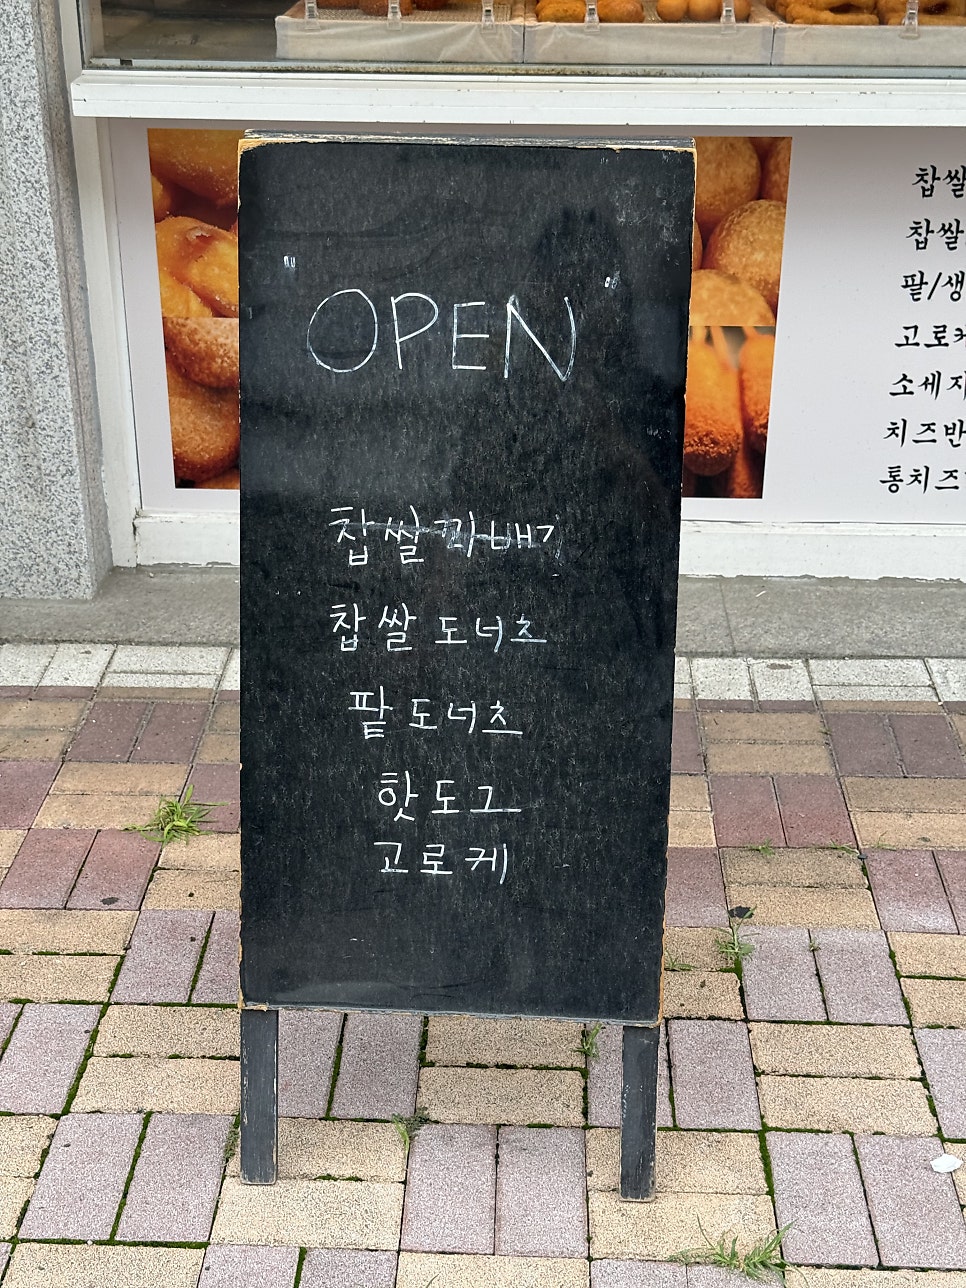 "OPEN"
찹쌀 꽈배기
찹쌀 도너츠
팥 도너츠
핫도그
고로케
찹쌀
찹쌀
팥/생
고로케
소세지
치즈반
통치즈